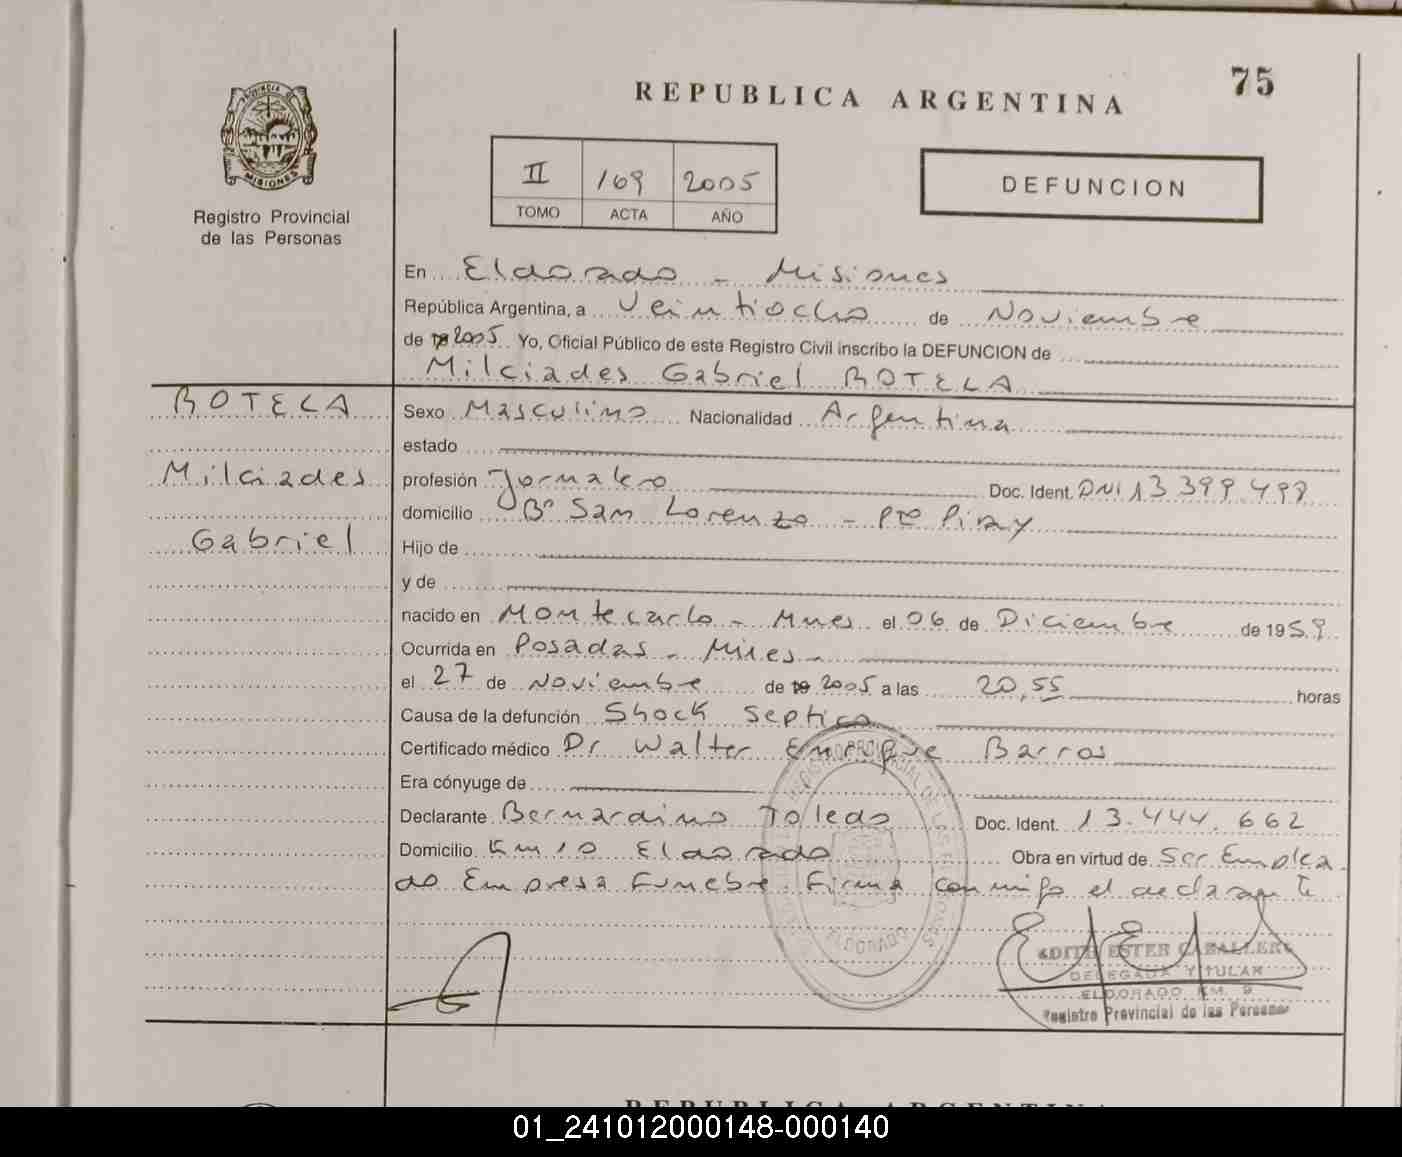 75
REPUBLICA ARGENTINA
PROVINCIA DE
MISIONES
Registro Provincial
de las Personas
II 169 2005
TOMO ACTA AÑO
DEFUNCION
En Eldorado - Misiones
República Argentina, a Veintiocho de Noviembre
de 2005 Yo, Oficial Público de este Registro Civil inscribo la DEFUNCION de
Milciades Gabriel BOTELA
BOTELA
Milciades
Gabriel
Sexo Masculino Nacionalidad Argentina
estado
profesión Jornalero Doc. Ident. DNI 13.399.498
domicilio Bº San Lorenzo - Pto Piray
Hijo de
y de
nacido en Montecarlo - Mnes el 06 de Diciembre de 1959
Ocurrida en Posadas - Mnes -
el 27 de Noviembre de 2005 a las 20,55 horas
Causa de la defunción Shock Septico
Certificado médico Dr Walter Enrique Barros
Era cónyuge de
Declarante Bernardino Toledo Doc. Ident. 13.444.662
Domicilio Km 10 Eldorado Obra en virtud de Ser Emplea
do Empresa Funebre. Firma conmigo el declarante
REGISTRO PROVINCIAL DE LAS PERSONAS
ELDORADO
EDITH ESTER CABALLERO
DELEGADA TITULAR
ELDORADO KM. 9
Registro Provincial de las Personas
REPUBLICA ARGENTINA
01_241012000148-000140